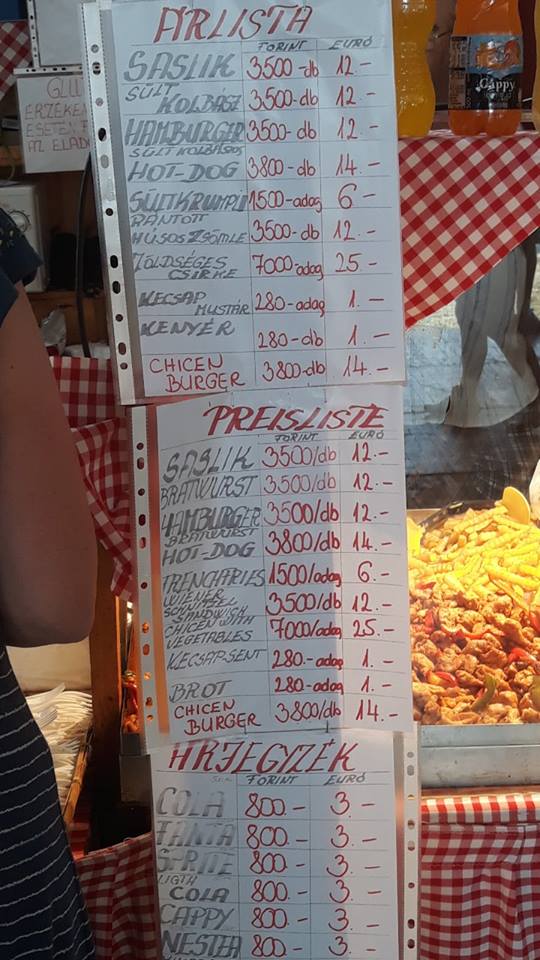 ÁRLISTA
FORINT EURÓ
SASLIK 3500-db 12.-
SÜLT KOLBÁSZ 3500-db 12.-
HAMBURGER 3500-db 12.-
SÜLT KOLBÁSOS HOT-DOG 3800-db 14.-
SÜLTKRUMPLI 1500-adag 6-
RÁNTOTT HÚSOS ZSÖMLE 3500-db 12.-
ZÖLDSÉGES CSIRKE 7000-adag 25-
KECSAP MUSTÁR 280-adag 1.-
KENYÉR 280-db 1.-
CHICEN BURGER 3800-db 14.-
GLU
ÉRZÉKEN
ESETÉN
AZ ELADÓ
Cappy
PREISLISTE
FORINT EURÓ
SASLIK 3500/db 12.-
BRATWURST 3500/db 12.-
HAMBURGER 3500/db 12.-
BRATWURST HOT-DOG 3800/db 14.-
FRENCHFRIES 1500/adag 6.-
WIENER SCHNITZEL SANDWICH 3500/db 12.-
CHICEN WITH VEGETABLES 7000/adag 25.-
KECSAP SENT 280.-adag 1.-
BROT 280-adag 1.-
CHICEN BURGER 3800/db 14.-
ÁRJEGYZÉK
FORINT EURÓ
COLA 800.- 3.-
FANTA 800.- 3.-
SPRITE 800.- 3.-
LIGTH COLA 800.- 3.-
CAPPY 800.- 3.-
NESTEA 800.- 3.-